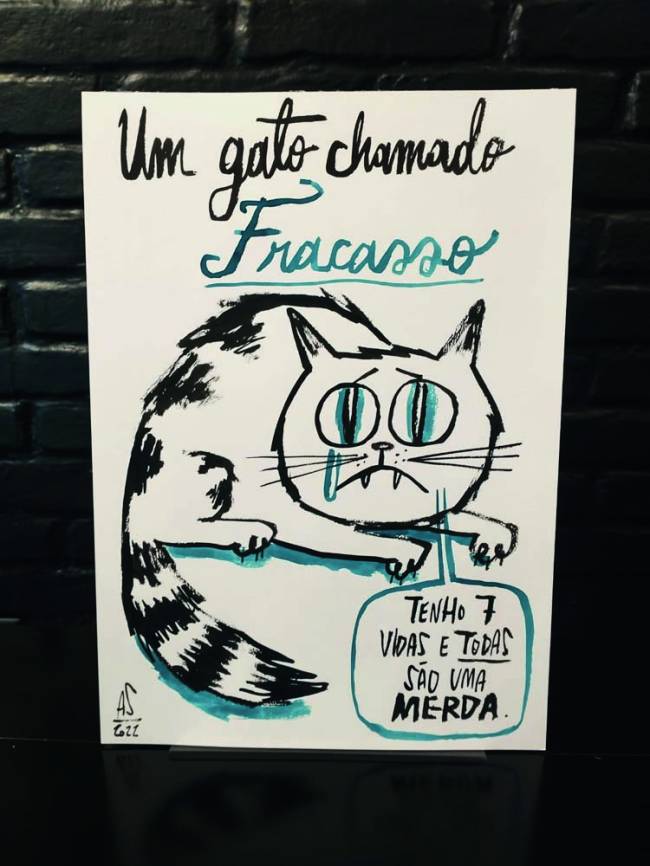 Um gato chamado
Fracasso
TENHO 7
VIDAS E TODAS
SÃO UMA
MERDA.
AS
2022